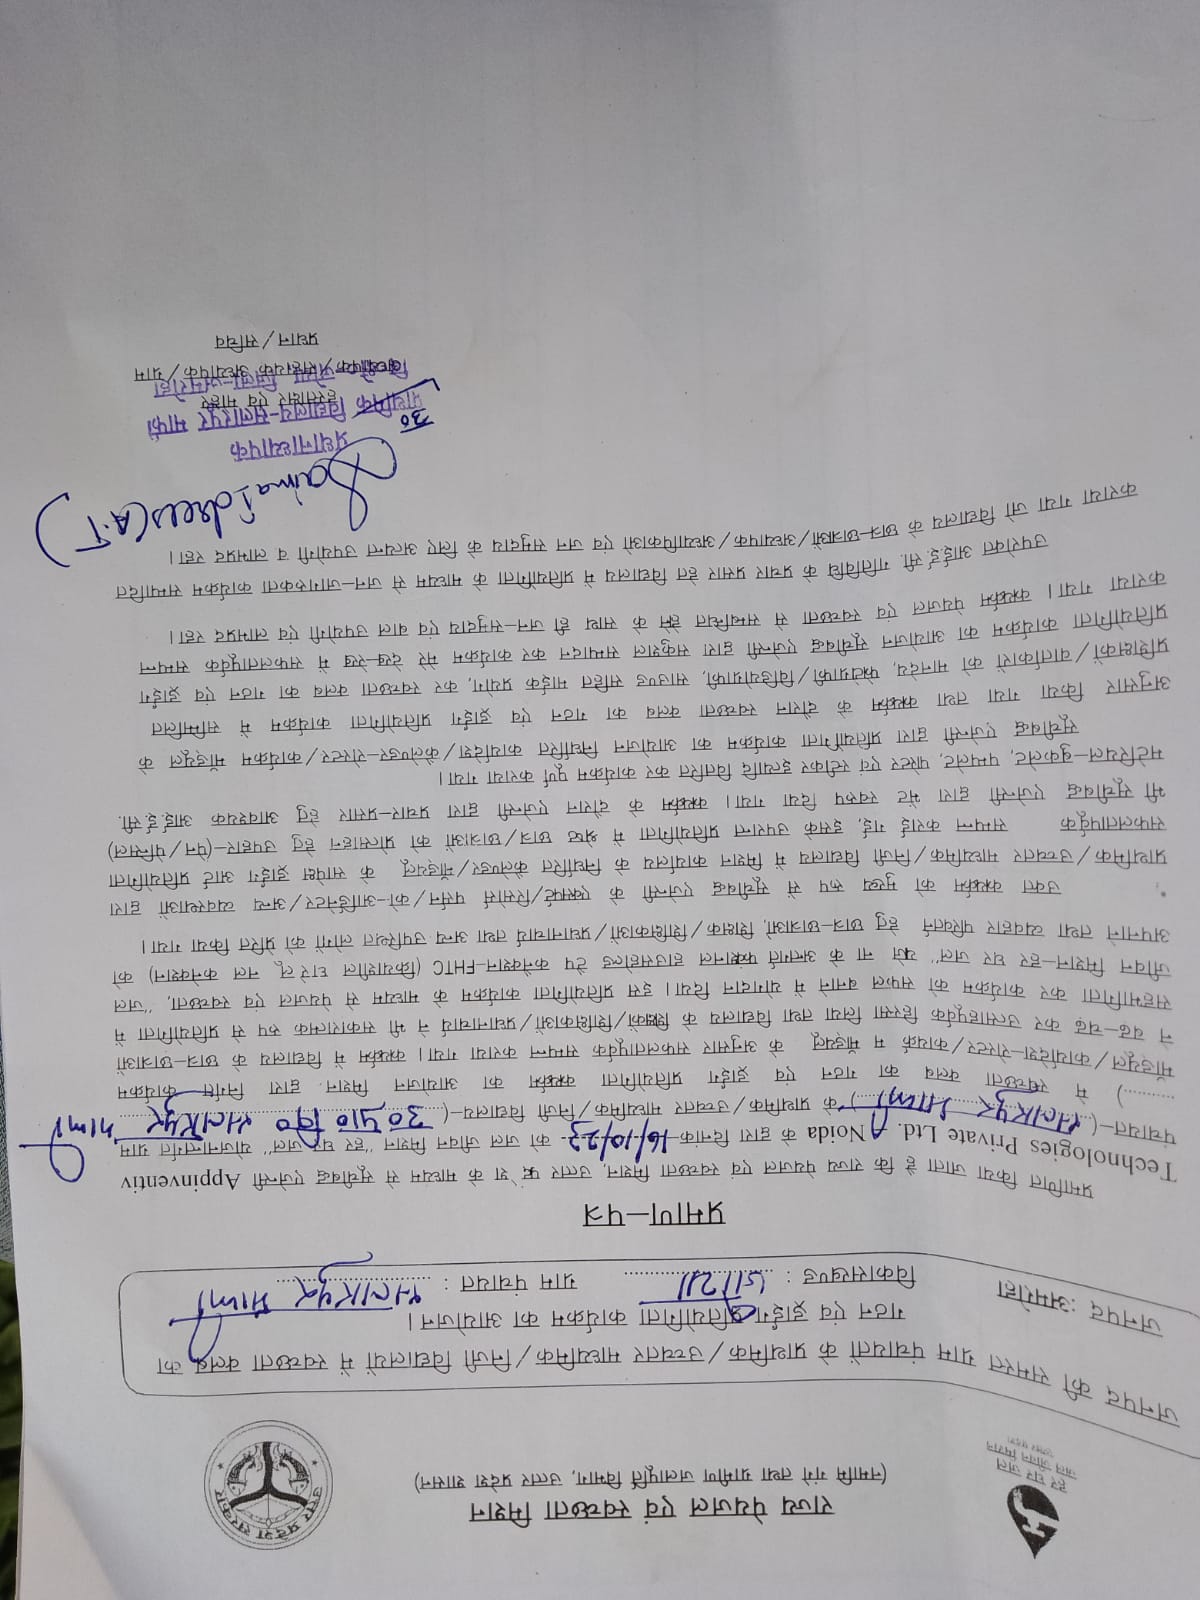 हर घर जल
जल जीवन मिशन
उत्तर प्रदेश सरकार
राज्य पेयजल एवं स्वच्छता मिशन
(नमामि गंगे तथा ग्रामीण जलापूर्ति विभाग, उत्तर प्रदेश शासन)
जनपद की समस्त ग्राम पंचायतों के प्राथमिक/उच्चतर माध्यमिक/निजी विद्यालयों में स्वच्छता क्लब का
गठन एवं ड्राईंग प्रतियोगिता कार्यक्रम का आयोजन।
जनपद :अमरोहा विकासखण्ड : जोया ग्राम पंचायत : सलारपुर माफी
प्रमाण–पत्र
प्रमाणित किया जाता है कि राज्य पेयजल एवं स्वच्छता मिशन, उत्तर प्रदेश के माध्यम से सूचीबद्ध एजेन्सी Appinventiv
Technologies Private Ltd. Noida के द्वारा दिनांक-16/10/23. को जल जीवन मिशन "हर घर जल" योजनान्तर्गत ग्राम
पंचायत–(सलारपुर माफी) के प्राथमिक/उच्चतर माध्यमिक/निजी विद्यालय–(उ0 प्रा0 वि0 सलारपुर माफी
..........) में स्वच्छता क्लब का गठन एवं ड्राईंग प्रतियोगिता कार्यक्रम का आयोजन मिशन द्वारा निर्गत कार्यक्रम
मॉड्यूल/कार्यादेश–रोस्टर/कार्यक्रम मॉड्यूल के अनुसार सफलतापूर्वक सम्पन्न कराया गया। कार्यक्रम में विद्यालय के छात्र–छात्राओं
ने बढ़–चढ़ कर उत्साहपूर्वक हिस्सा लिया तथा विद्यालय के शिक्षकों/शिक्षिकाओं/प्रधानाचार्य ने भी सकारात्मक रुप से प्रतियोगिता में
सहभागिता कर कार्यक्रम को सफल बनाने में योगदान दिया। इस प्रतियोगिता कार्यक्रम के माध्यम से पेयजल एवं स्वच्छता, "जल
जीवन मिशन–हर घर जल" योजना के अन्तर्गत फंक्शनल हाउसहोल्ड टैप कनेक्शन–FHTC (क्रियाशील घरेलू नल कनेक्शन) को
अपनाने तथा व्यवहार परिवर्तन हेतु छात्र–छात्राओं, शिक्षक/शिक्षिकाओं/प्रधानाचार्य तथा अन्य उपस्थित लोगों को प्रेरित किया गया।
उक्त कार्यक्रम को मुख्य रुप से सूचीबद्ध एजेन्सी के एक्सपर्ट/रिसोर्स पर्सन/को–आर्डिनेटर/अन्य व्यवस्थाओं द्वारा
प्राथमिक/उच्चतर माध्यमिक/निजी विद्यालय में मिशन कार्यालय के निर्धारित कैलेण्डर/मॉड्यूल के सापेक्ष ड्राईंग आर्ट प्रतियोगिता
सफलतापूर्वक सम्पन्न कराई गई, इसके उपरान्त प्रतियोगिता में श्रेष्ठ छात्र/छात्राओं को प्रोत्साहन हेतु उपहार–(पेन/पेन्सिल)
भी सूचीबद्ध एजेन्सी द्वारा भेंट स्वरुप दिया गया। कार्यक्रम के दौरान एजेन्सी द्वारा प्रचार–प्रसार हेतु आवश्यक आई.ई.सी.
मटेरियल–बुकलेट, पम्पलेट, पोस्टर एवं स्टीकर इत्यादि वितरित कर कार्यक्रम पूर्ण कराया गया।
सूचीबद्ध एजेन्सी द्वारा प्रतियोगिता कार्यक्रम का आयोजन निर्धारित कार्यादेश/कैलेण्डर–रोस्टर/कार्यक्रम मॉड्यूल के
अनुसार किया गया तथा कार्यक्रम के दौरान स्वच्छता क्लब का गठन एवं ड्राईंग प्रतियोगिता कार्यक्रम में सम्मिलित
प्रशिक्षकों/वार्ताकारों को मानदेय, फोटोग्राफी/विडियोग्राफी, साउण्ड सहित माईक प्रयोग, कर स्वच्छता क्लब का गठन एवं ड्राईंग
प्रतियोगिता कार्यक्रम का आयोजन सूचीबद्ध एजेन्सी द्वारा सकुशल सम्पादन कर कार्यक्रम मेरे देख–रेख में सफलतापूर्वक सम्पन्न
कराया गया। कार्यक्रम पेयजल एवं स्वच्छता से सम्बन्धित होने के साथ ही जन–समुदाय एवं बाल उपयोगी एवं लाभप्रद रहा।
उपरोक्त आई.ई.सी. गतिविधि के प्रचार प्रसार हेतु विद्यालय में प्रतियोगिता के माध्यम से जन–जागरुकता कार्यक्रम सम्पादित
कराया गया जो विद्यालय के छात्र–छात्राओं/अध्यापक/अध्यापिकाओं एवं जन समुदाय के लिए अत्यन्त उपयोगी व लाभप्रद रहा।
Saima Idrees (A.T)
प्रधानाध्यापक
उ0
प्राथमिक विद्यालय-सलारपुर माफी
हस्ताक्षर एवं मोहर
जोया जिला-अमरोहा
अध्यापक/सहायक अध्यापक/ग्राम
प्रधान/सचिव